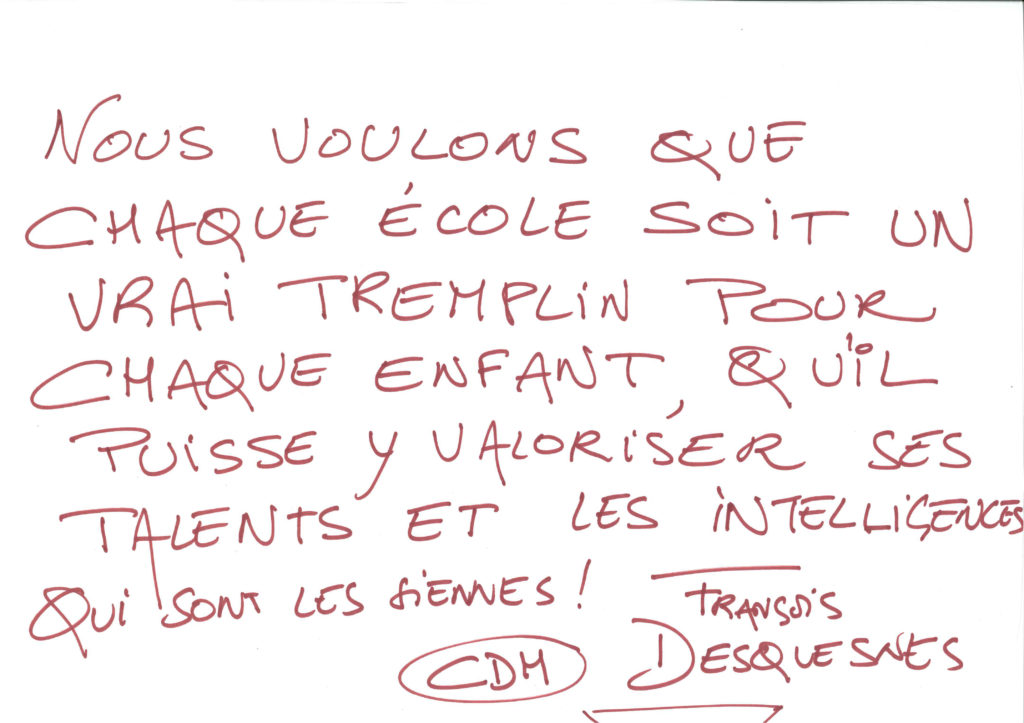 NOUS VOULONS QUE
CHAQUE ÉCOLE SOIT UN
VRAI TREMPLIN POUR
CHAQUE ENFANT, QU'IL
PUISSE Y VALORISER SES
TALENTS ET LES INTELLIGENCES
QUI SONT LES SIENNES !
FRANÇOIS
DESQUESNES
CDH